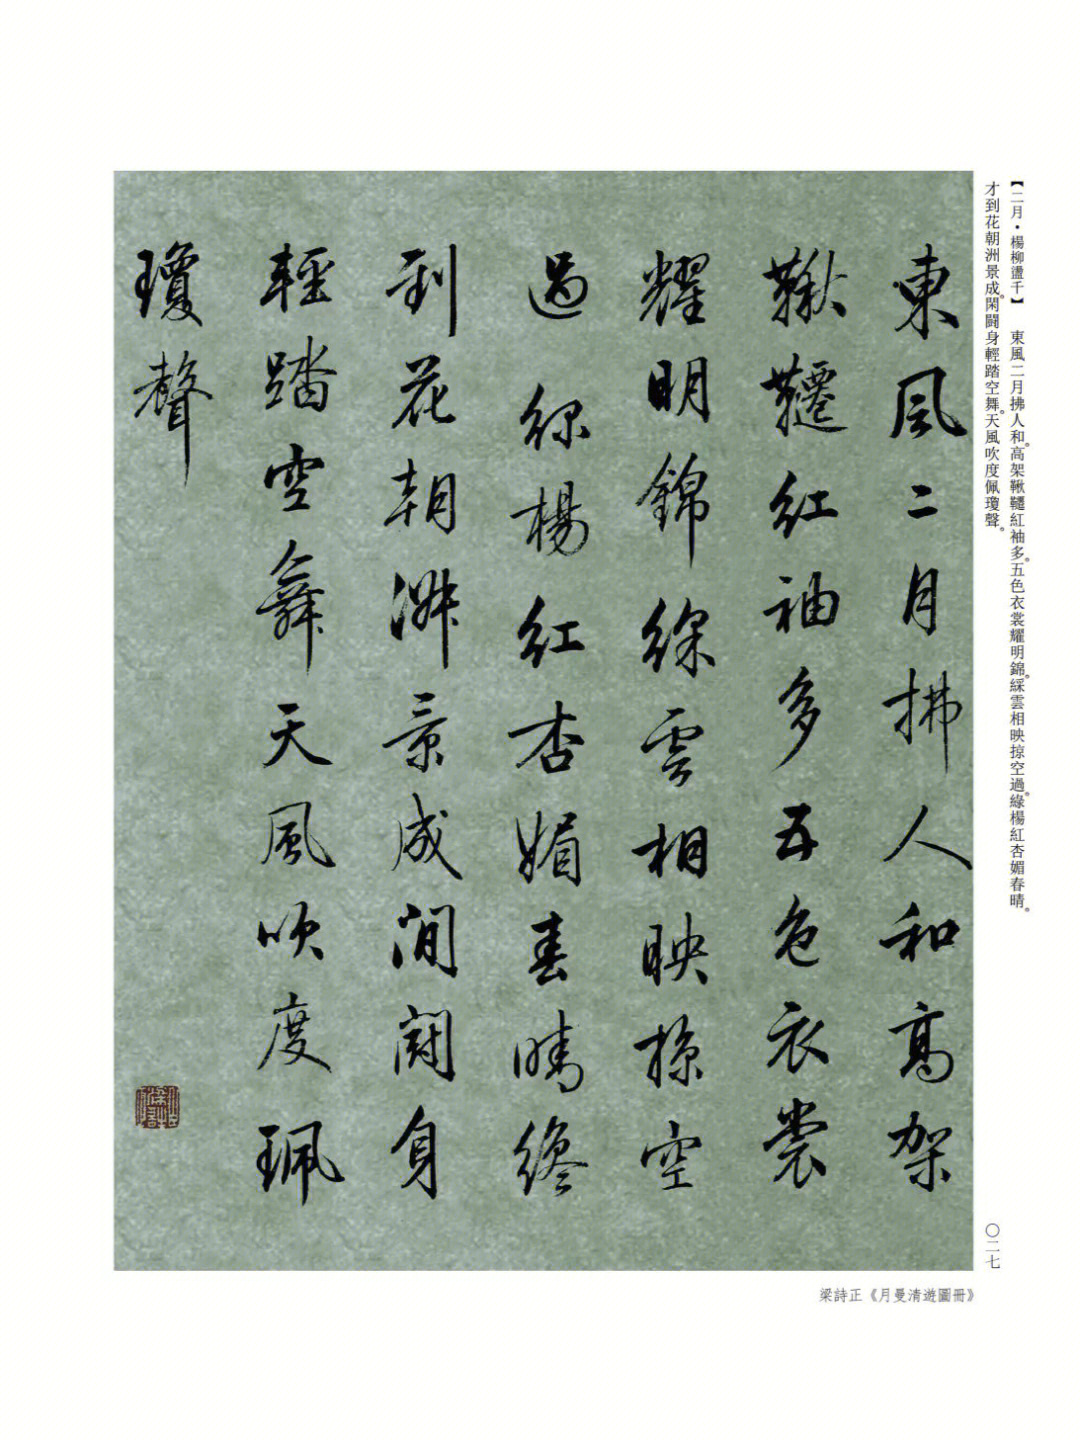 【二月·楊柳盪千】 東風二月拂人和。高架鞦韆紅袖多。五色衣裳耀明錦。綵雲相映掠空過。綠楊紅杏媚春晴。
才到花朝洲景成。閑鬪身輕踏空舞。天風吹度佩瓊聲。
東風二月拂人和高架
鞦韆紅袖多五色衣裳
耀明錦綵雲相映掠空
過綠楊紅杏媚春晴纔
到花朝淑景成閒鬪身
輕踏空舞天風吹度珮
瓊聲
〇二七
梁詩正《月曼清遊圖冊》